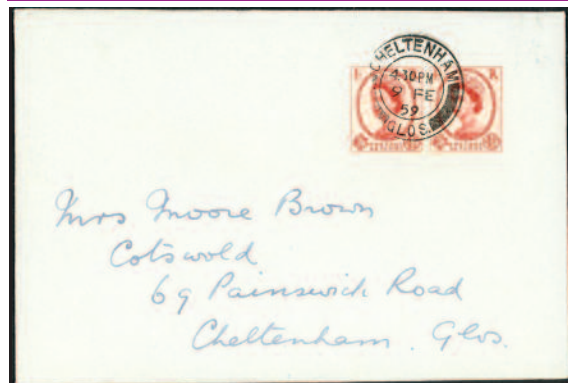 CHELTENHAM
4-30PM
9 FE
59
GLOS.
Mrs Moore Brown
Cotswold
69 Painswick Road
Cheltenham. Glos.